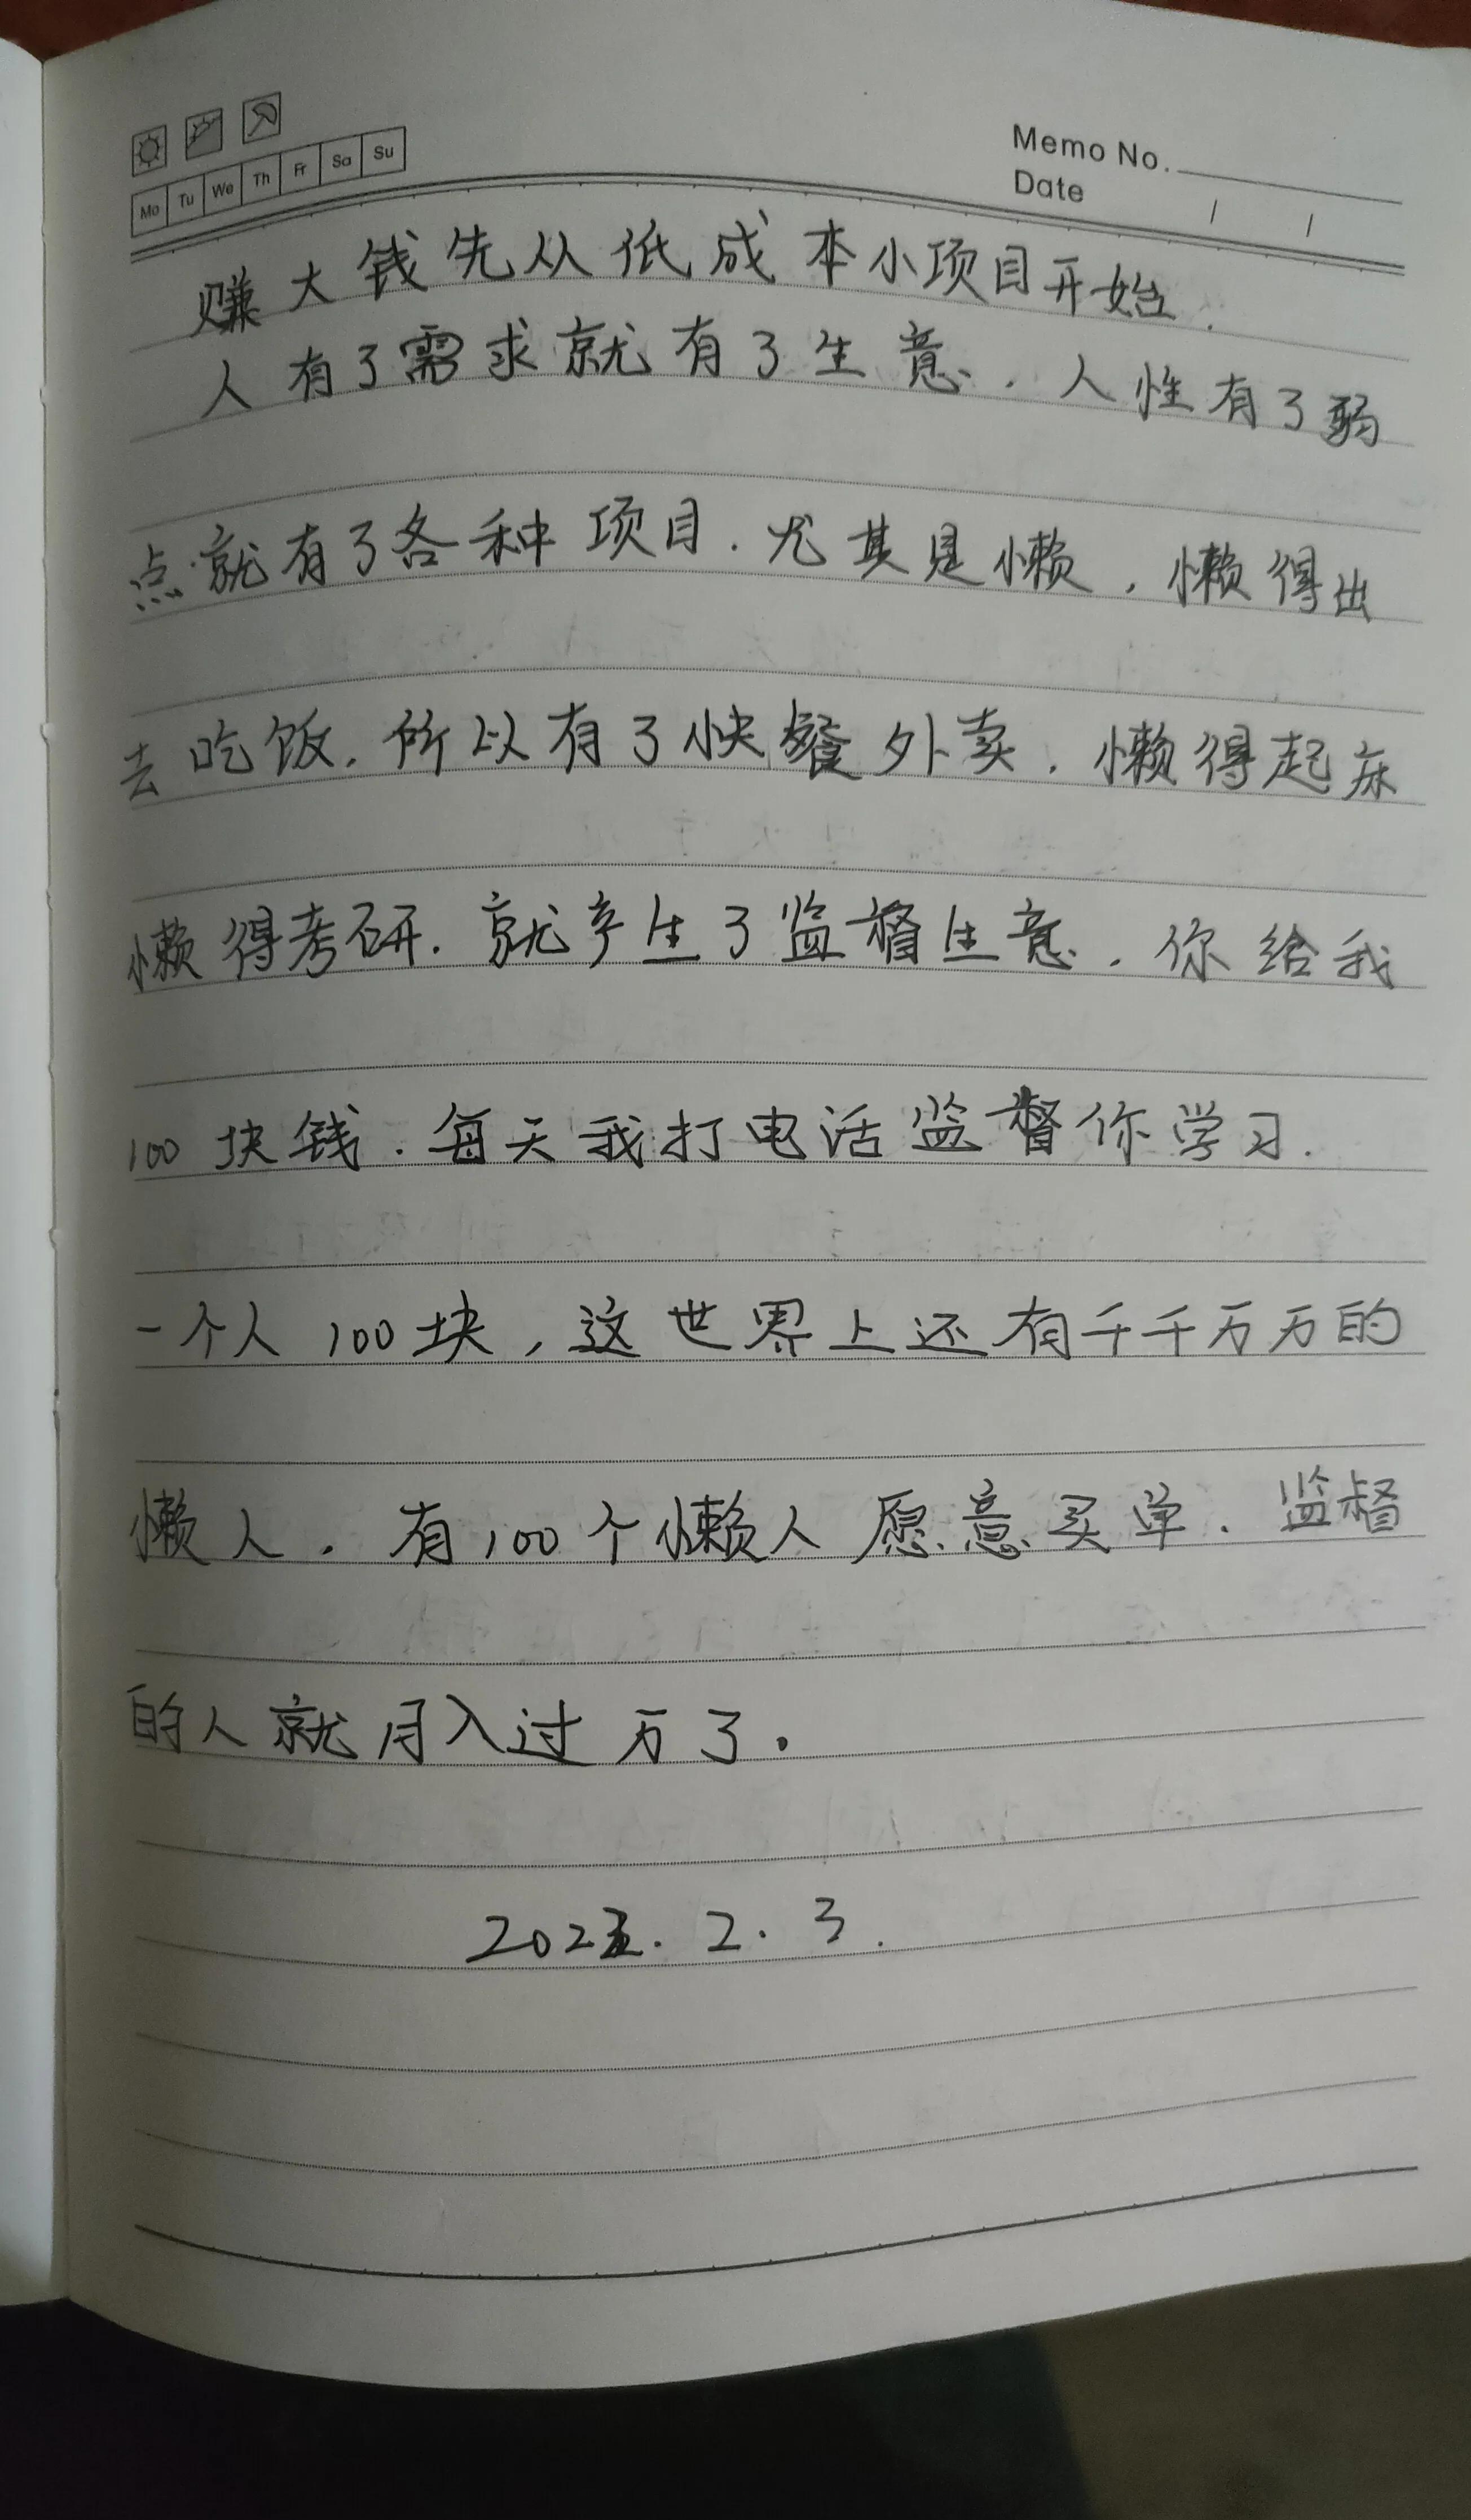 Mo Tu We Th Fr Sa Su
Memo No.
Date / /
赚大钱先从低成本小项目开始.
人有了需求就有了生意.人性有了弱
点.就有了各种项目.尤其是懒,懒得出
去吃饭.所以有了快餐外卖.懒得起床
懒得考研.就产生了监督生意.你给我
100块钱.每天我打电话监督你学习.
一个人100块,这世界上还有千千万万的
懒人.有100个懒人愿意买单.监督
的人就月入过万了.
2.3.